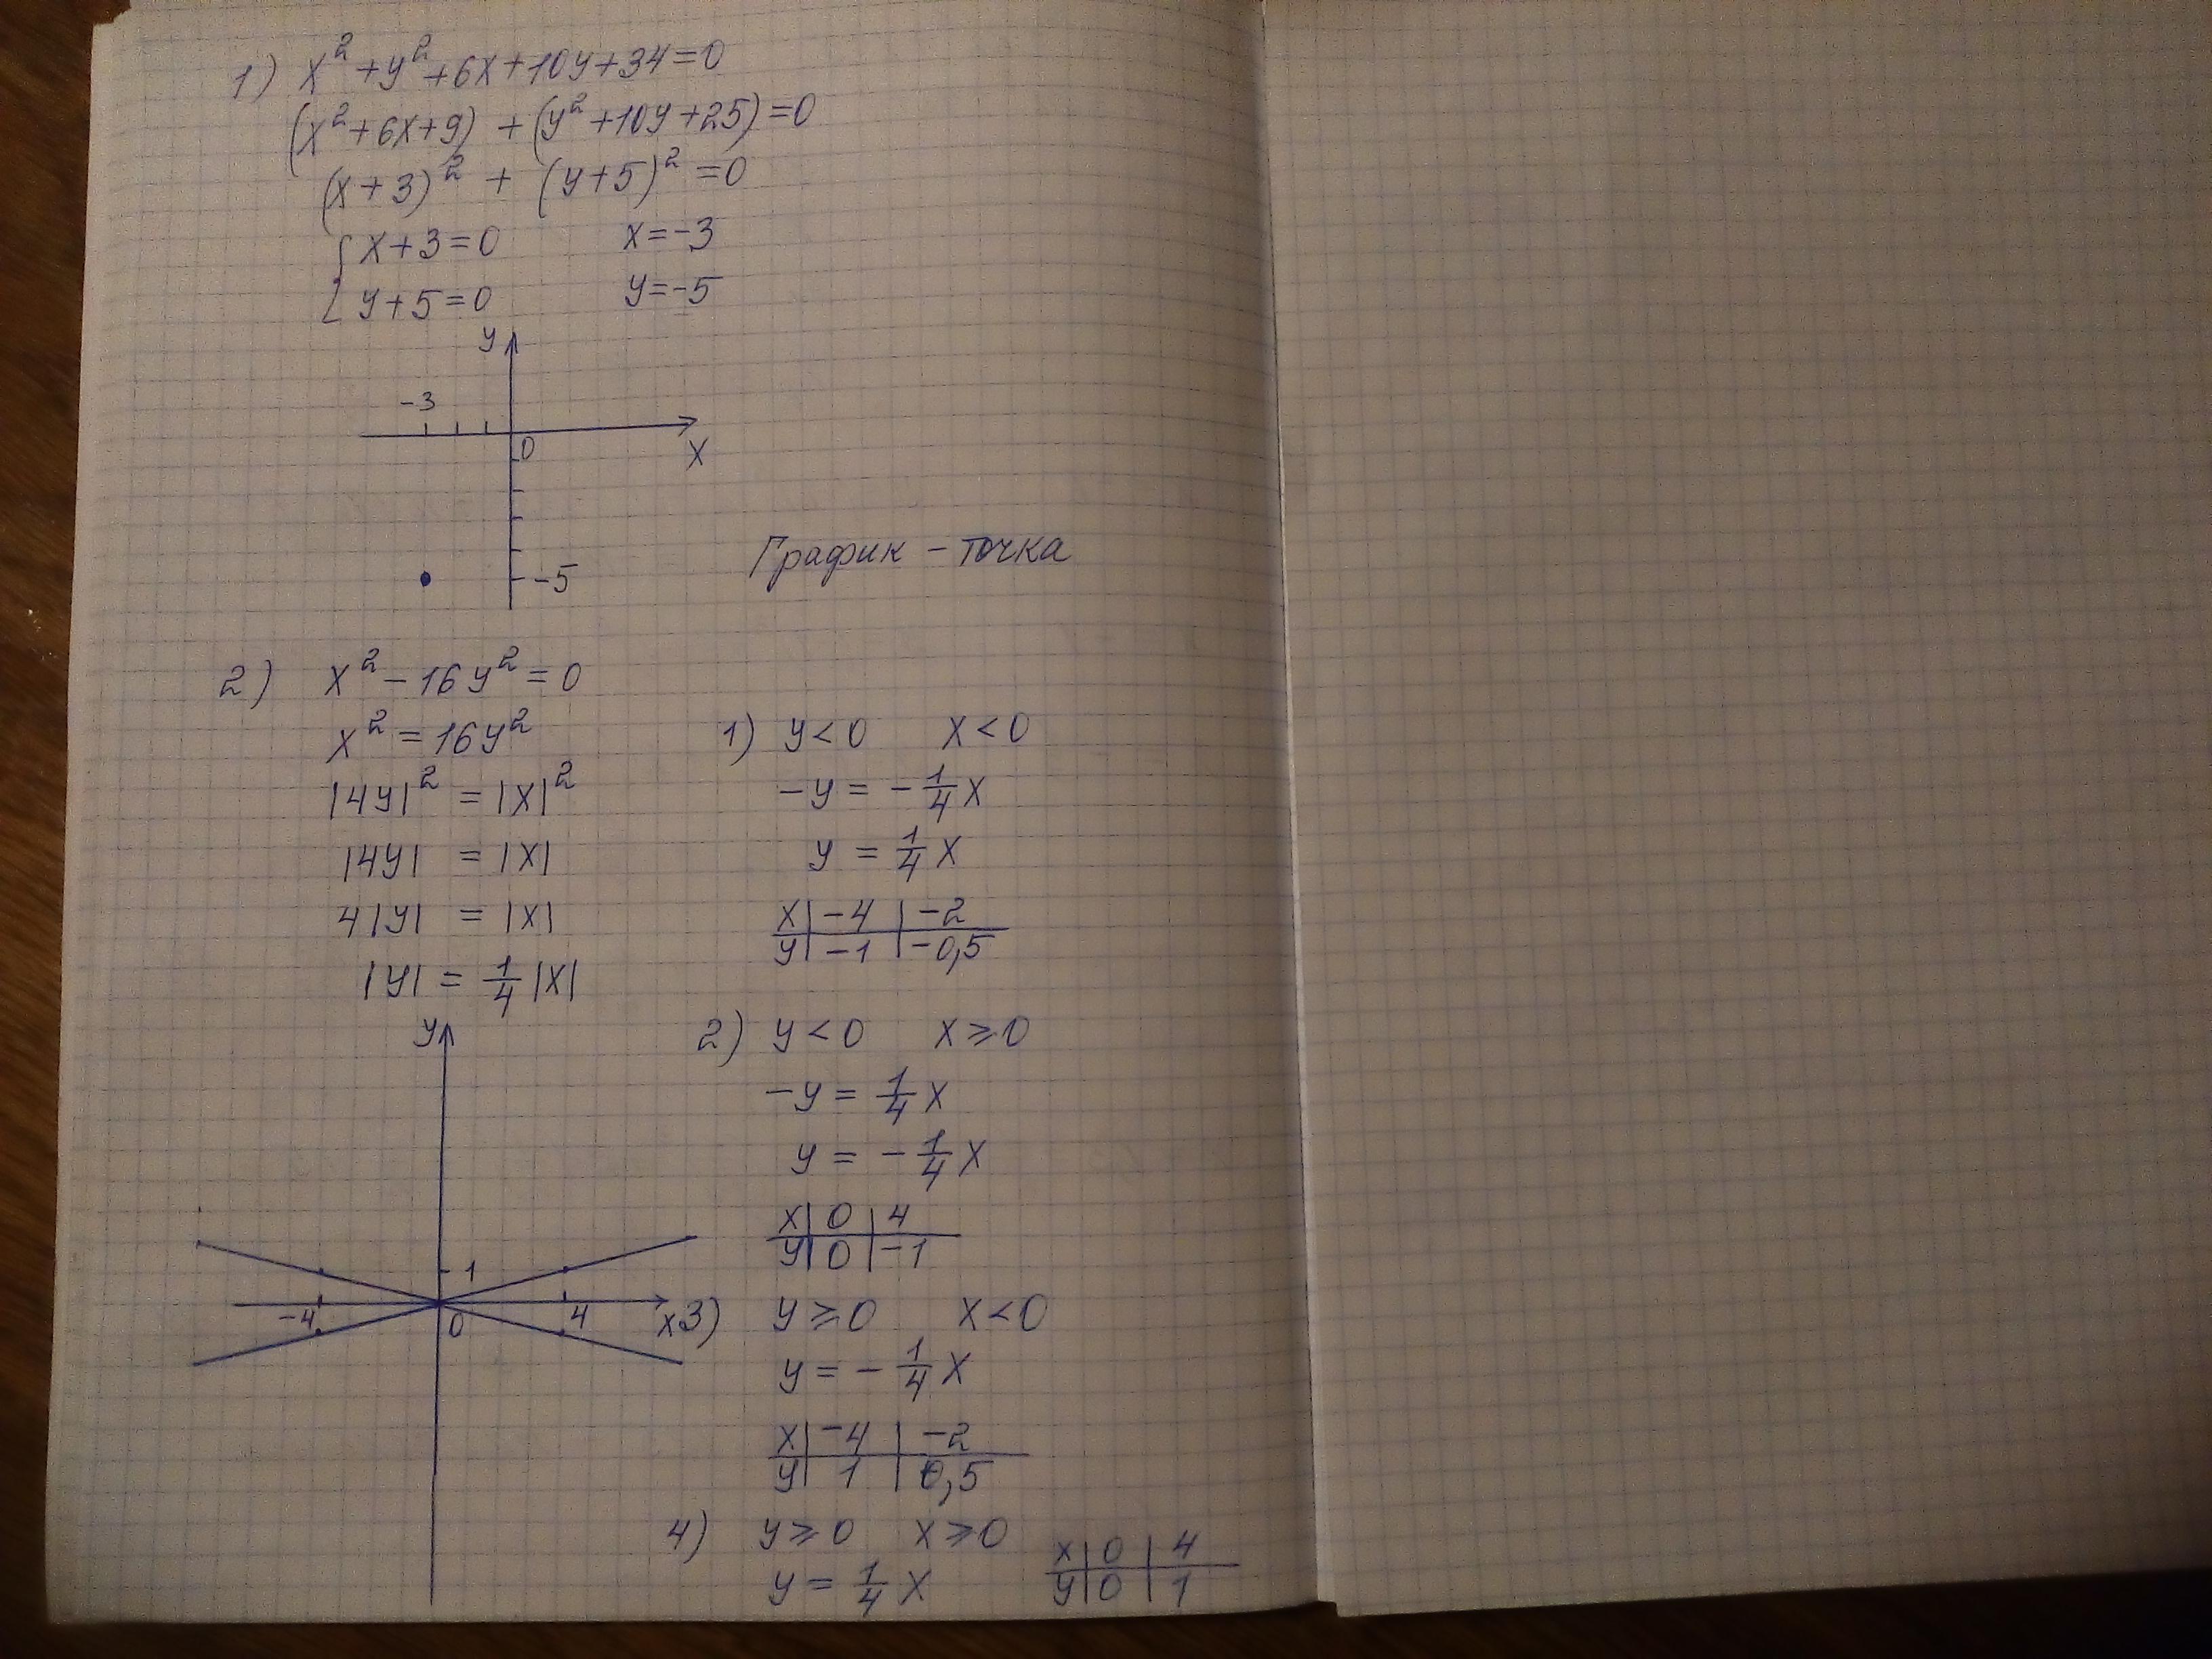 1) x² + y² + 6x + 10y + 34 = 0
(x² + 6x + 9) + (y² + 10y + 25) = 0
(x + 3)² + (y + 5)² = 0
{ x + 3 = 0 x = -3
y + 5 = 0 y = -5
y
-3
0
x
-5
График - точка
2) x² - 16y² = 0
x² = 16y²
|4y|² = |x|²
|4y| = |x|
4|y| = |x|
|y| = 1/4 |x|
y
1
-4
0
4
x
1) y < 0 x < 0
-y = - 1/4 x
y = 1/4 x
x | -4 | -2
y | -1 | -0,5
2) y < 0 x ≥ 0
-y = 1/4 x
y = - 1/4 x
x | 0 | 4
y | 0 | -1
3) y ≥ 0 x < 0
y = - 1/4 x
x | -4 | -2
y | 1 | 0,5
4) y ≥ 0 x ≥ 0
y = 1/4 x
x | 0 | 4
y | 0 | 1